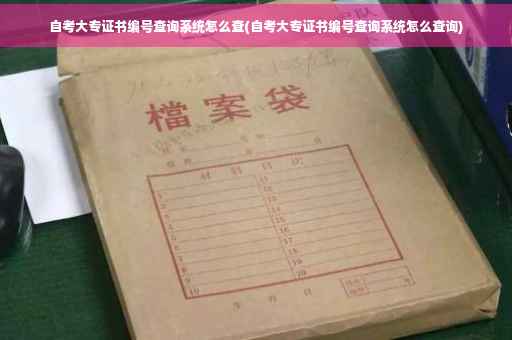 自考大专证书编号查询系统怎么查(自考大专证书编号查询系统怎么查询)
檔案袋
材料目次
1 11
2 12
3 13
4 14
5 15
6 16
7 17
8 18
9 19
10 20
年 月 日